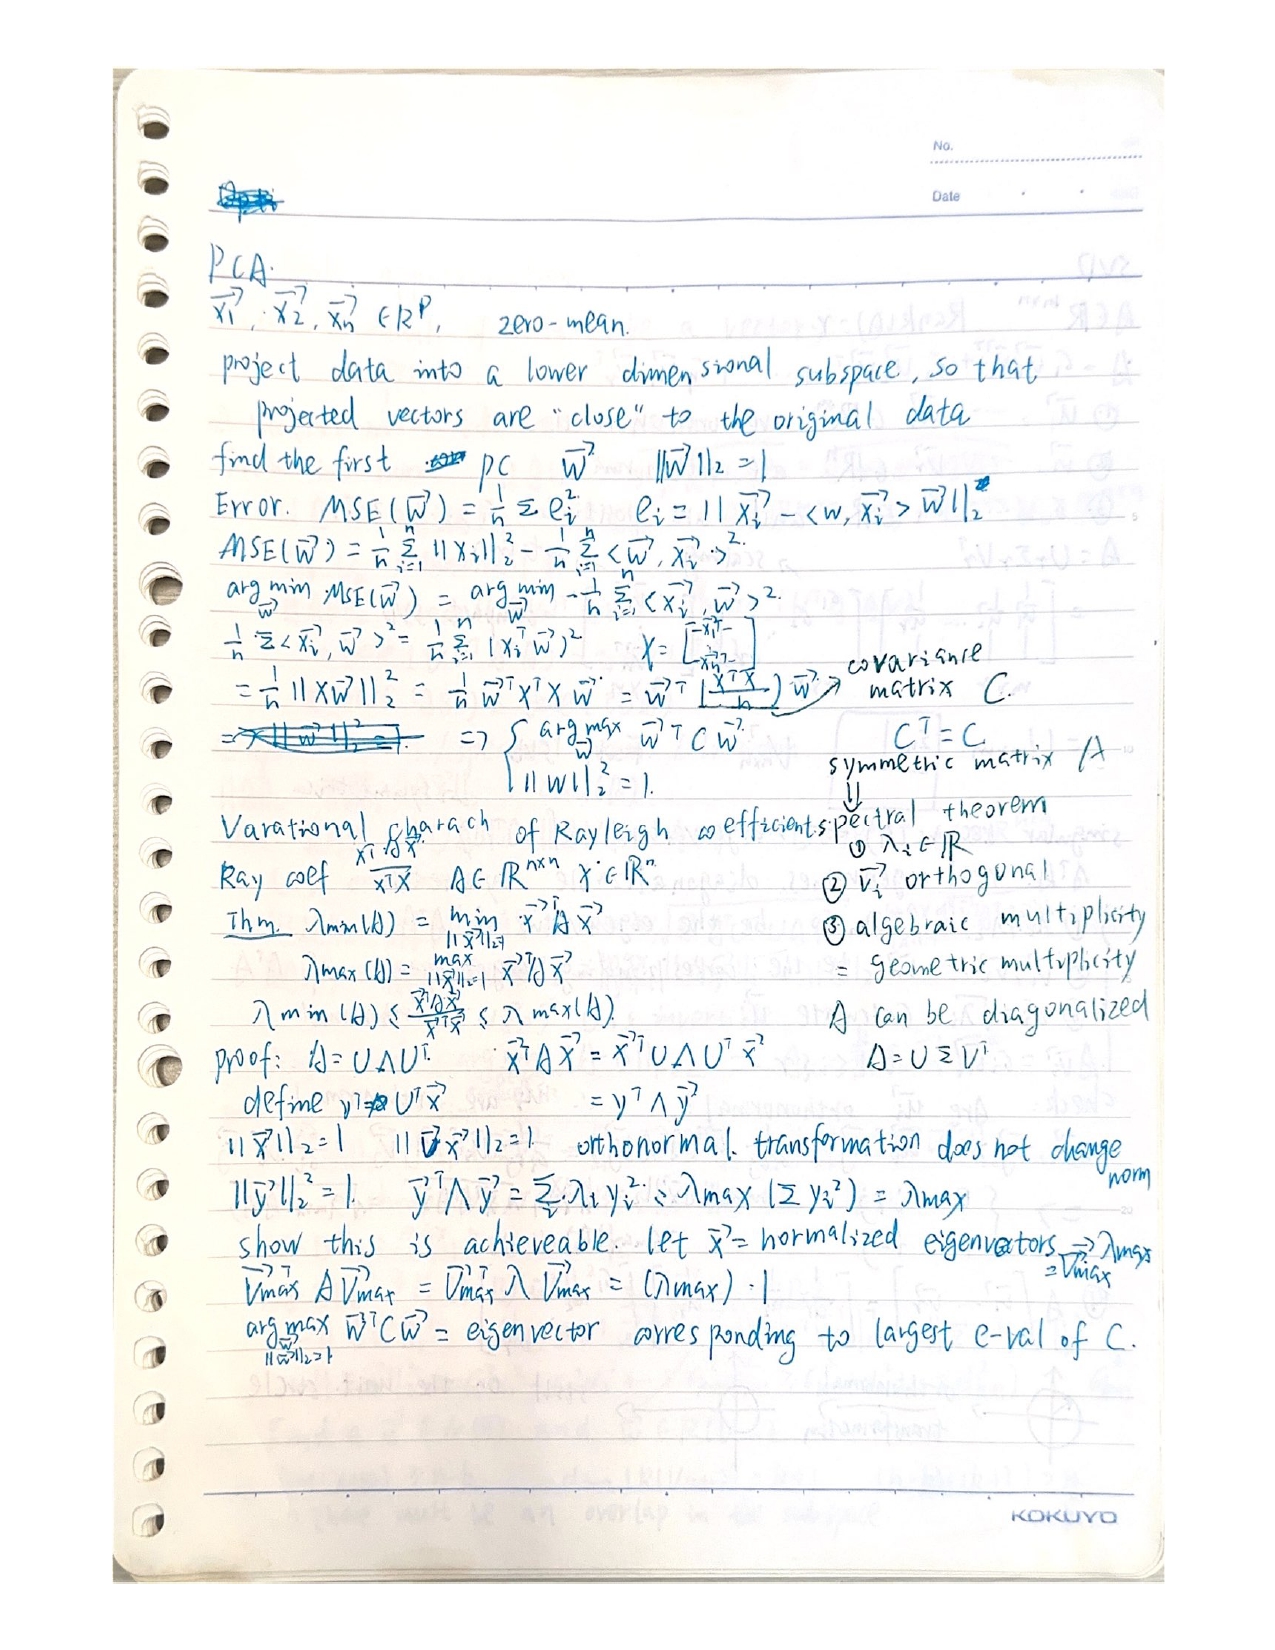 No.
Date
PCA.
x₁⃗, x₂⃗, xₙ⃗ ∈ ℝᵖ, zero-mean.
project data into a lower dimensional subspace, so that
projected vectors are "close" to the original data
find the first PC w⃗ ||w⃗||₂ = 1
Error. MSE(w⃗) = 1/n Σ eᵢ². eᵢ = ||xᵢ⃗ - <w, xᵢ⃗> w⃗||₂
MSE(w⃗) = 1/n Σᵢ₌₁ⁿ ||xᵢ||₂² - 1/n Σᵢ₌₁ⁿ <w⃗, xᵢ⃗>².
arg min_w⃗ MSE(w⃗) = arg min_w⃗ - 1/n Σᵢ₌₁ⁿ <xᵢ⃗, w⃗>².
1/n Σ <xᵢ⃗, w⃗>² = 1/n Σᵢ₌₁ⁿ (xᵢᵀ w⃗)² X = [-x₁⃗ᵀ- -xₙ⃗ᵀ-]
= 1/n ||Xw⃗||₂² = 1/n w⃗ᵀXᵀX w⃗ = w⃗ᵀ (XᵀX/n) w⃗ → covariance matrix C.
=> { arg max_w⃗ w⃗ᵀ C w⃗
||w||₂² = 1.
Cᵀ = C
symmetric matrix A
⇓
spectral theorem
① λᵢ ∈ ℝ
② vᵢ⃗ orthogonal
③ algebraic multiplicity
= geometric multiplicity
A can be diagonalized
A = U Σ Vᵀ
Varational charach of Rayleigh coefficient.
Ray coef xᵀAx⃗/xᵀx A ∈ ℝⁿˣⁿ x ∈ ℝⁿ
Thm. λmin(A) = min_||x⃗||₂=1 x⃗ᵀA x⃗
λmax(A) = max_||x⃗||₂=1 x⃗ᵀA x⃗
λmin(A) ≤ x⃗ᵀAx⃗/x⃗ᵀx⃗ ≤ λmax(A).
proof: A = UΛUᵀ. x⃗ᵀA x⃗ = x⃗ᵀUΛUᵀ x⃗
define y⃗ = Uᵀx⃗ = yᵀ Λ y⃗
||x⃗||₂ = 1 ||U x⃗||₂ = 1. orthonormal. transformation does not change norm
||y⃗||₂² = 1. y⃗ᵀ Λ y⃗ = Σᵢ λᵢ yᵢ² ≤ λmax (Σ yᵢ²) = λmax
show this is achieveable. let x⃗ = normalized eigenvectors → λmax
= v⃗max
v⃗maxᵀ A v⃗max = v⃗maxᵀ λ v⃗max = (λmax) · 1
arg max_w⃗ ||w⃗||₂=1 w⃗ᵀCw⃗ = eigenvector corresponding to largest e-val of C.
KOKUYO